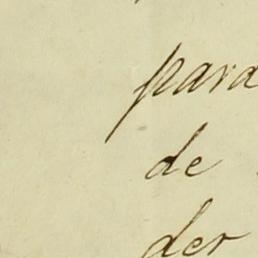 para
de
der